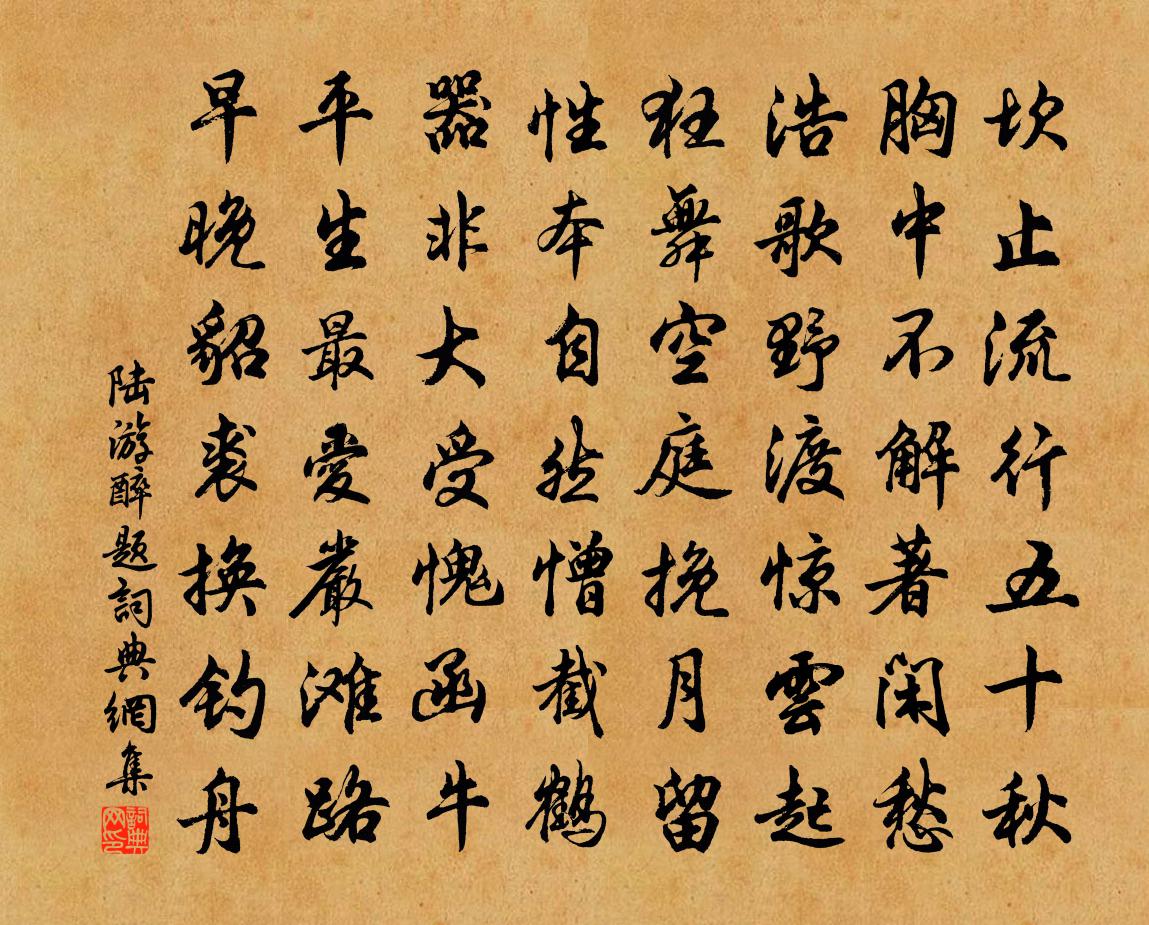 坎止流行五十秋
胸中不解著闲愁
浩歌野渡惊雲起
狂舞空庭挽月留
性本自然憎截鹤
器非大受愧函牛
平生最愛嚴滩路
早晚貂裘换钓舟
陆游醉题詞典網集
詞典网印